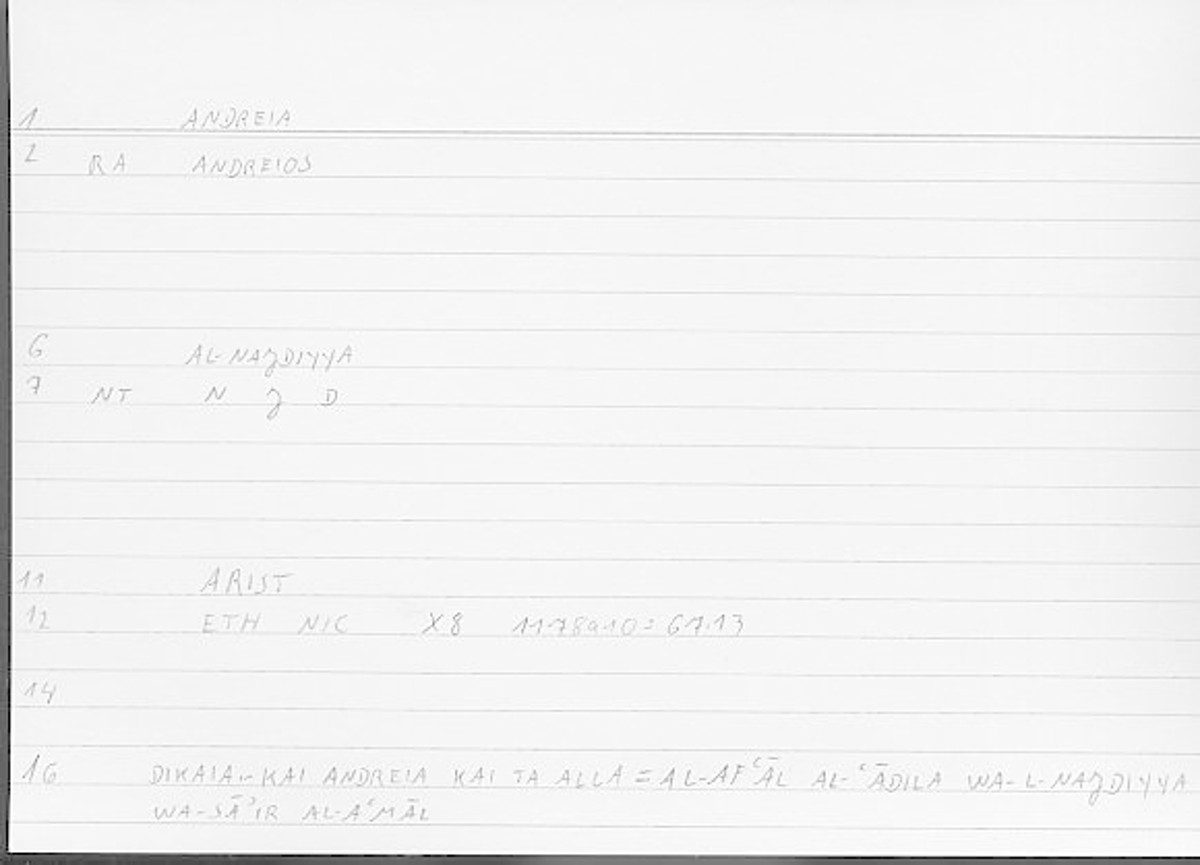 1 ANDREIA
2 RA ANDREIOS
6 AL-NAǧDIYYA
7 NT N ǧ D
11 ARIST
12 ETH NIC X8 1178a10 = 617.13
14
16 DIKAIA.. KAI ANDREIA KAI TA ALLA = AL-AFʿĀL AL-ʿĀDILA WA-L-NAǧDIYYA
WA-SĀʾIR AL-AʿMĀL